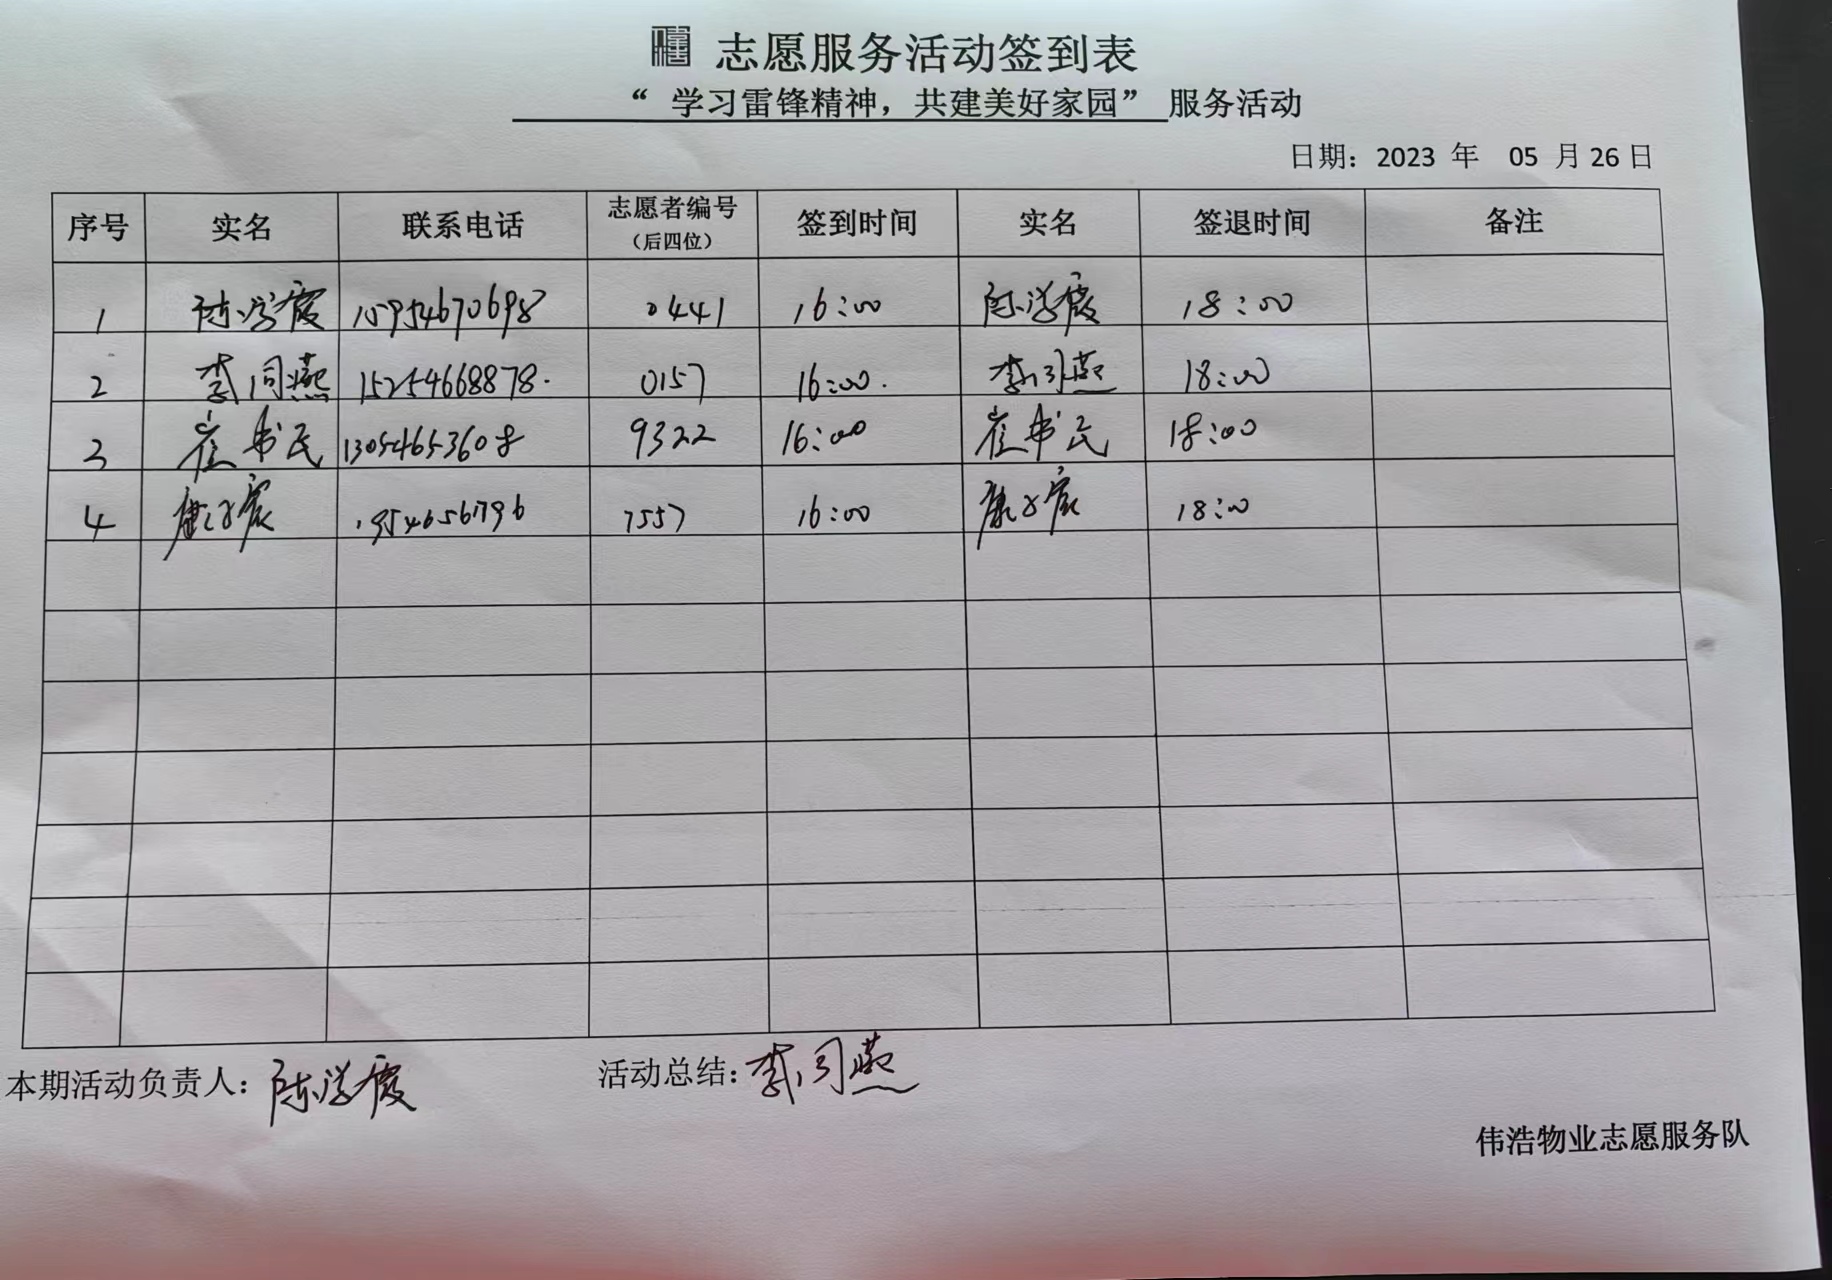 志愿服务活动签到表
“ 学习雷锋精神，共建美好家园” 服务活动
日期：2023 年 05 月 26 日
序号 实名 联系电话 志愿者编号（后四位） 签到时间 实名 签退时间 备注
1 陈学霞 15954670698 0441 16:00 陈学霞 18:00
2 李同燕 15254668878. 0157 16:00. 李同燕 18:00
3 崔书民 13054653608 9322 16:00 崔书民 18:00
4 7557 16:00 18:00
本期活动负责人：陈学霞 活动总结：李同燕
伟浩物业志愿服务队